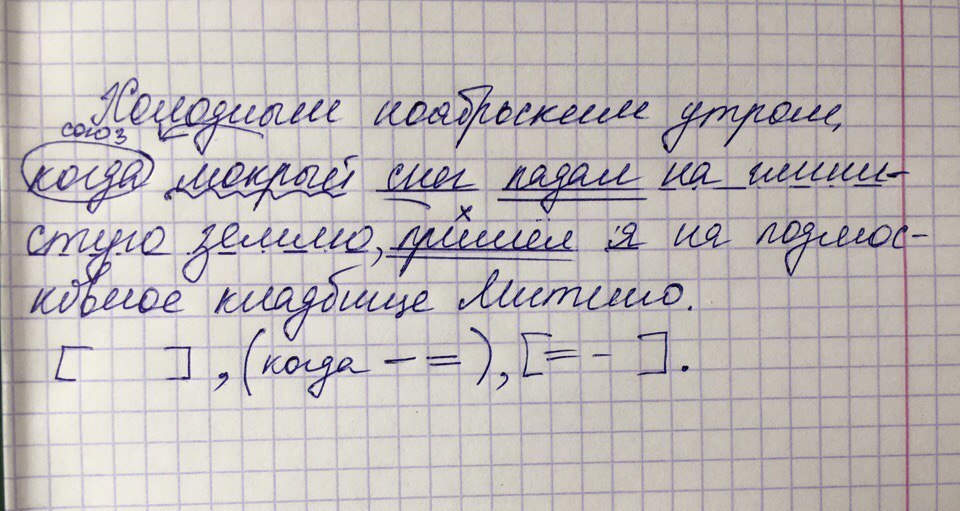 Холодным ноябрьским утром,
союз
когда мокрый снег падал на глини-
стую землю, пришёл я на подмос-
ковное кладбище Митино.
х
[ ], (когда – =), [= – ].